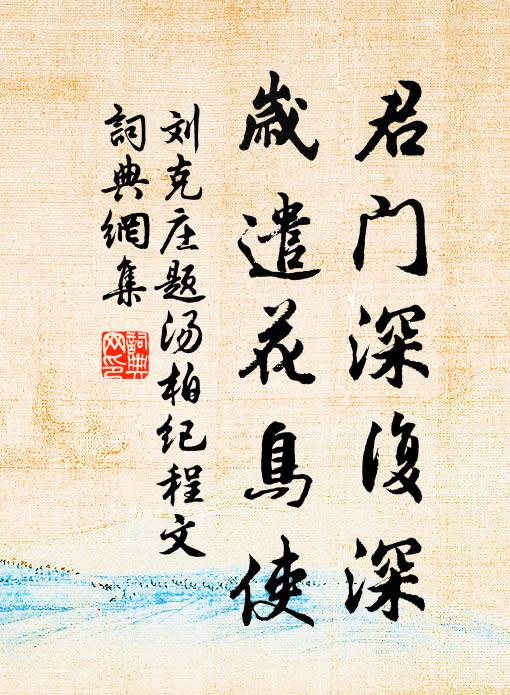 君门深復深
歲遣花鳥使
刘克庄题汤柏纪程文
詞典網集
詞典
网印